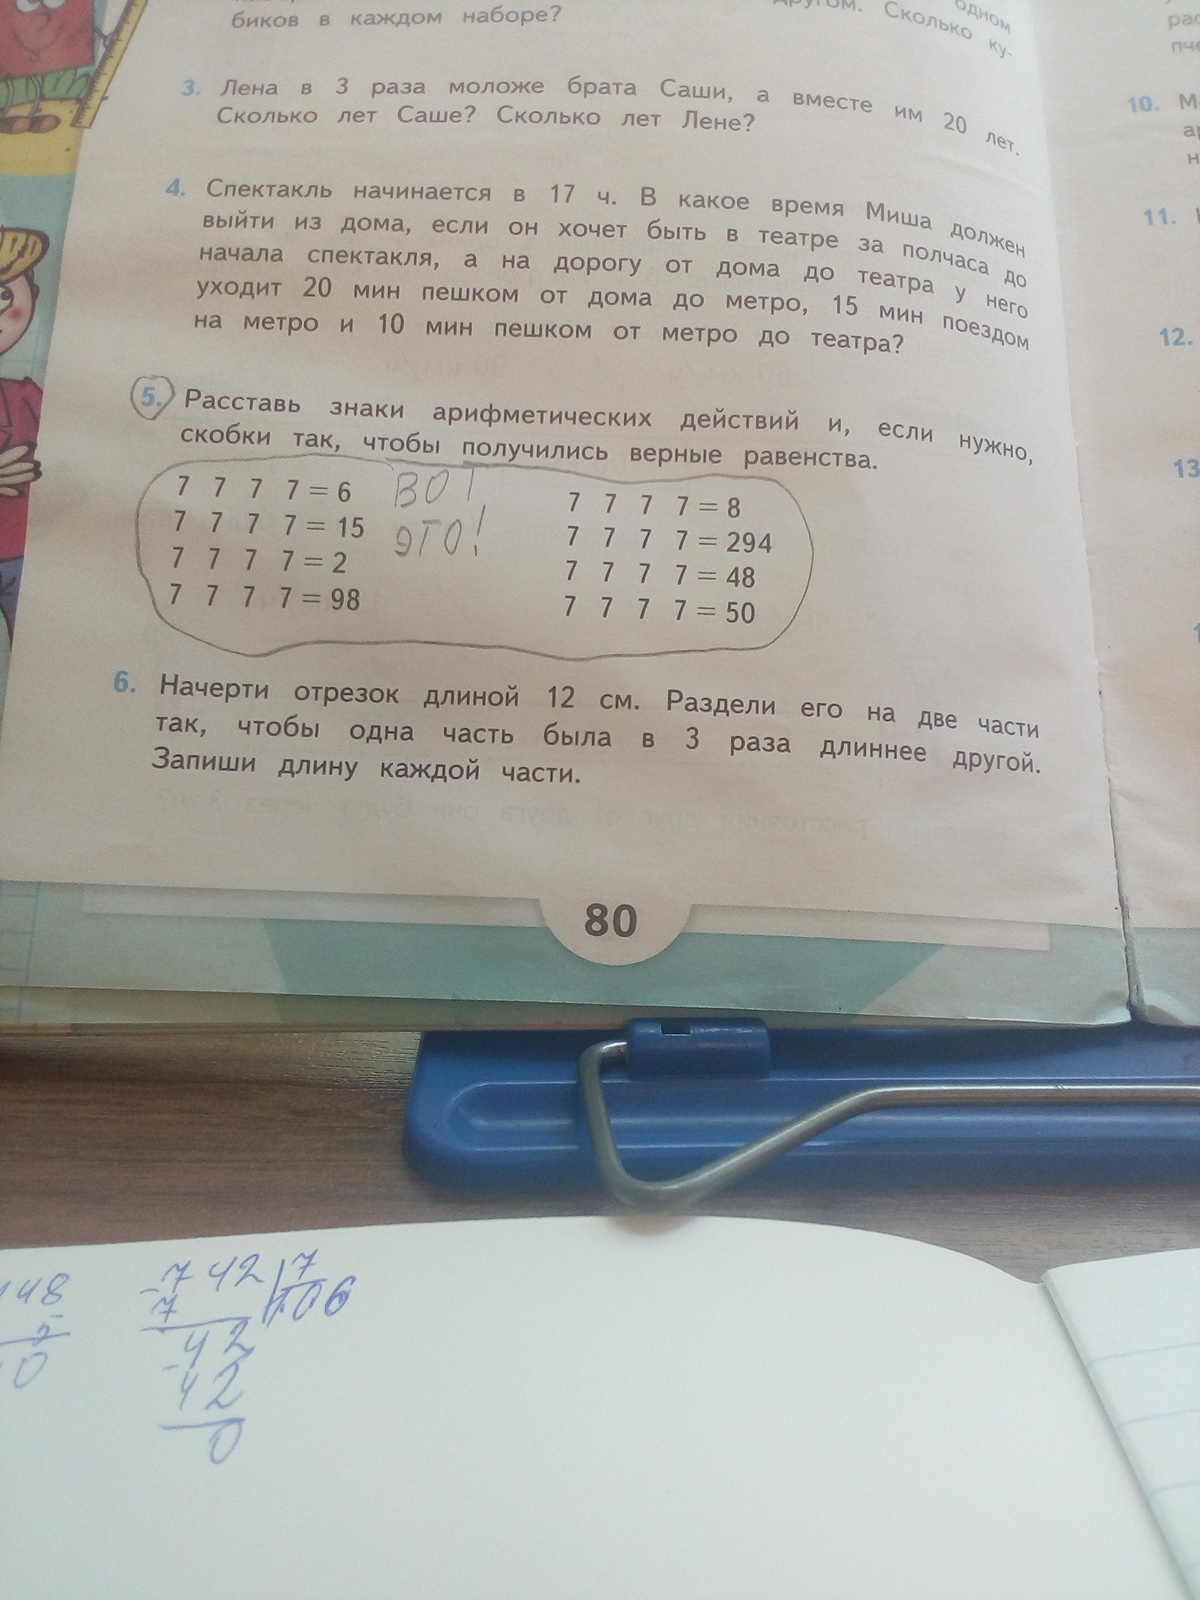 одном
другом. Сколько ку-
биков в каждом наборе?
3. Лена в 3 раза моложе брата Саши, а вместе им 20 лет.
Сколько лет Саше? Сколько лет Лене?
4. Спектакль начинается в 17 ч. В какое время Миша должен
выйти из дома, если он хочет быть в театре за полчаса до
начала спектакля, а на дорогу от дома до театра у него
уходит 20 мин пешком от дома до метро, 15 мин поездом
на метро и 10 мин пешком от метро до театра?
5. Расставь знаки арифметических действий и, если нужно,
скобки так, чтобы получились верные равенства.
7 7 7 7 = 6
7 7 7 7 = 15
7 7 7 7 = 2
7 7 7 7 = 98
ВОТ
ЭТО!
7 7 7 7 = 8
7 7 7 7 = 294
7 7 7 7 = 48
7 7 7 7 = 50
6. Начерти отрезок длиной 12 см. Раздели его на две части
так, чтобы одна часть была в 3 раза длиннее другой.
Запиши длину каждой части.
80
10.
11.
12.
13
48
5
0
-742 7
7 106
-42
42
0